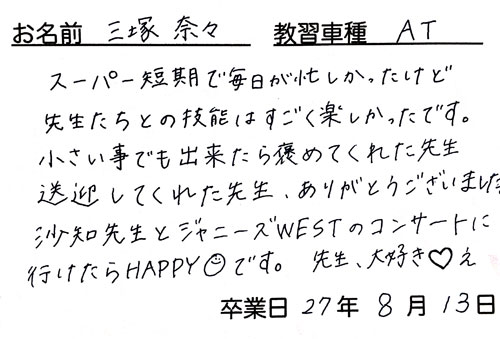 お名前 三塚 奈々 教習車種 AT
スーパー短期で毎日が忙しかったけど
先生たちとの技能はすごく楽しかったです。
小さい事でも出来たら褒めてくれた先生
送迎してくれた先生、ありがとうございました
沙知先生とジャニーズWESTのコンサートに
行けたらHAPPY☺です。 先生、大好き♡え
卒業日 27年 8月 13日